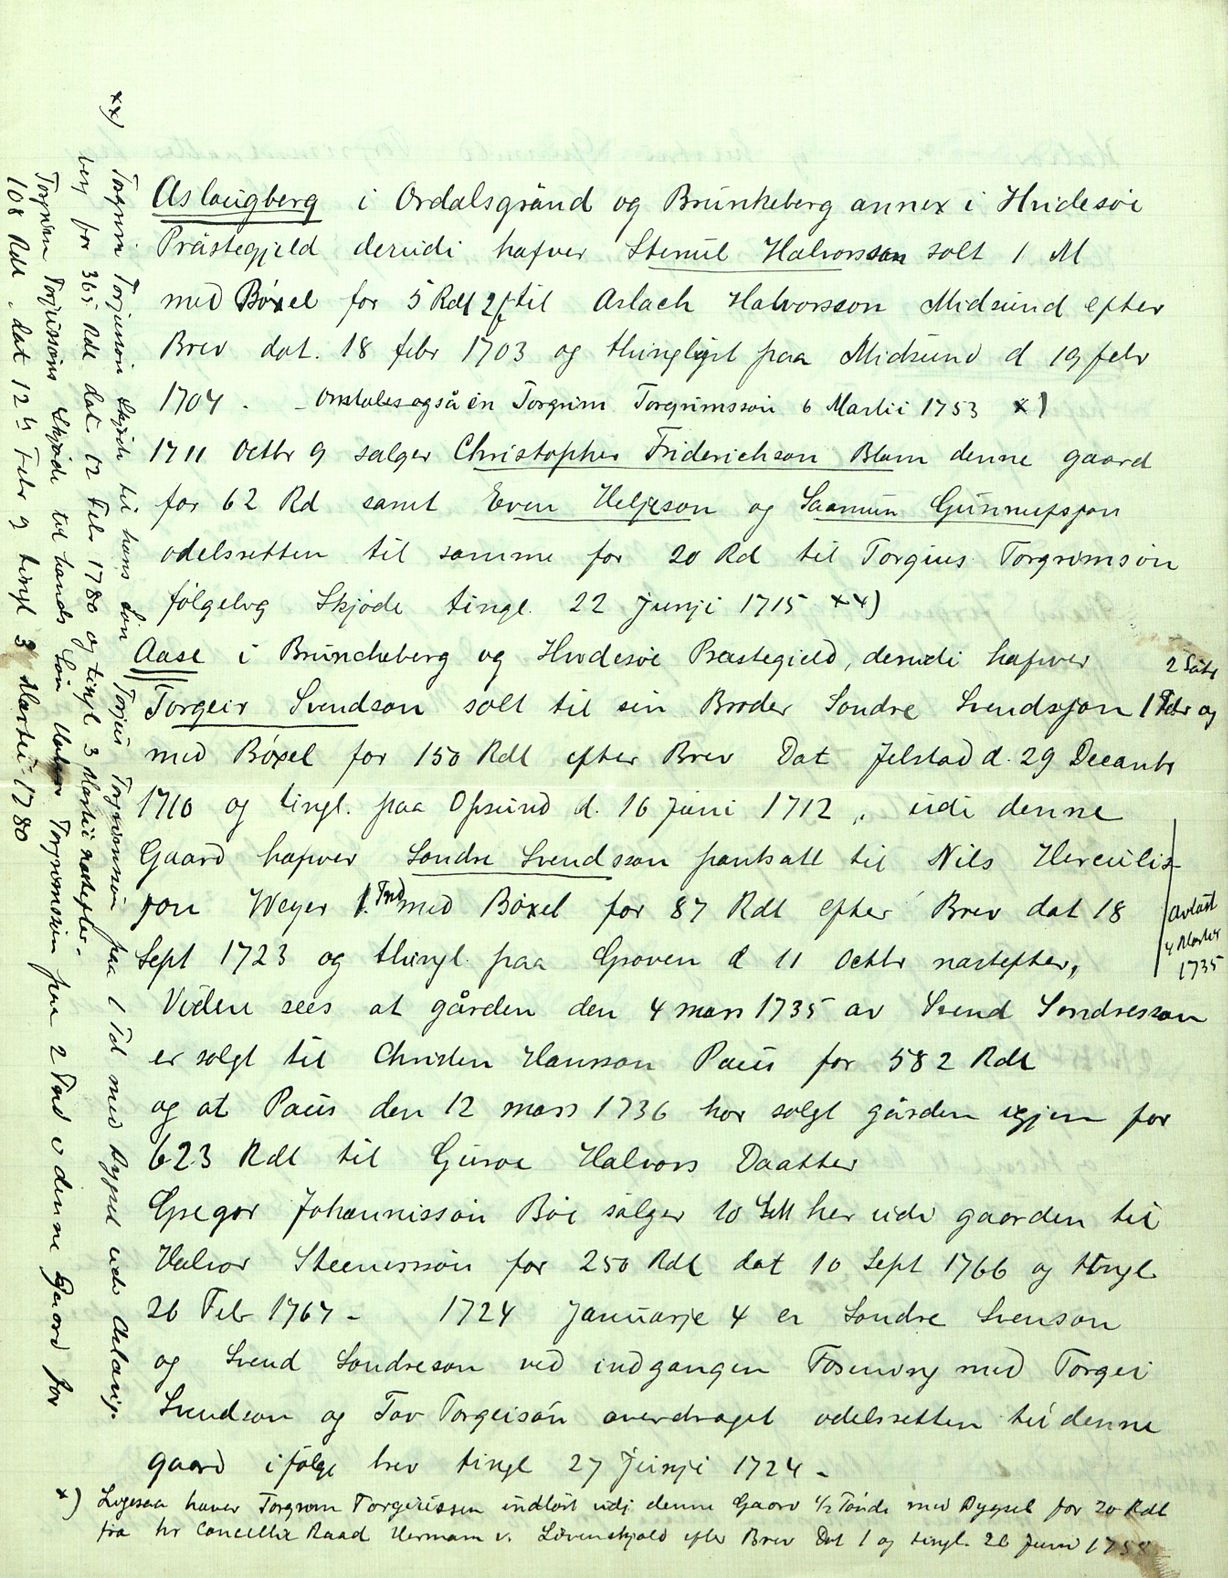 Aslaugberg i Ordalsgrand og Brunkeberg annex i Hvidesøe
Præstegjeld derudi hafver Stenul Halvorsson solt 1 M
med Bøxel for 5 Rdl til Aslach Halvorsson Midsund efter
Brev dat. 18 febr 1703 og thinglyst paa Midsund d 19 febr
1704 . - også en Torgrim Torgrimsson 6 Martii 1753 x)
1711 Octbr 9 sælger Christopher Friderichson Blom denne gaard
for 62 Rd samt Even Heljeson og Saamun Gunnufsson
odelsretten til samme for 20 Rd til Torgius Torgrimsøn
følgelig Skjøde tingl. 22 Junji 1715 xx)
Aase i Bruncheberg og Hvidesøe Præstegield, derudi hafver
Torgeir Svendson solt til sin Broder Sondre Svendsson 1 og
2
med Bøxel for 150 Rdl efter Brev Dat Jelstad d. 29 Decembr
1710 og tingl. paa Opsund d. 16 Juni 1712, udi denne
Gaard hafver Sondre Svendsson pantsatt til Nils Herculis
son Weyer 1. Tnd med Bøxel for 87 Rdl efter Brev dat 18
Sept 1723 og thingl. paa Groven d 11 Octbr næstefter,
avløst
4 Martii
1735
Videre sees at gården den 4 mars 1735 av Svend Sondresson
er solgt til Christen Hansson Paus for 582 Rdl
og at Paus den 12 mars 1736 har solgt gården igjen for
623 Rdl til Guroe Halvors Daatter
Gregor Johannisson Bøe sælger 10 her udi gaarden til
Halvor Steenersøn for 250 Rdl dat 10 Sept 1766 og tingl.
26 Feb 1767 - 1724 Januarje 4 er Sondre Svenson
og Svend Sondreson ved indgangen Forening med Torgei
Svendson og Tov Torgeisøn overdraget odelsretten til denne
gaard i følge brev tingl 27 Junji 1724 -
x) Ligesaa haver Torgrom indløst udj denne Gaard 1/2 Tønde med Bygsel for 20 Rdl
fra hr Cancellie Raad Herman v. Løvenskjold efter Brev Dat 1 og tingl. 26 Juni
xx) Torgrim Torjusson Skjøde til hans Søn Torjus Torgrimssøn paa 1 Td med Bygsel udi Aslaug-
berg for 365 Rdl dat 12 Febr 1780 og tingl 3 Martii næstefter.
Torgrim Torjussøns Skjøde til hands Søn Torgrimssøn paa 2 Tnd i denne Gaard for
108 Rdl, dat 12th Febr og tingl 3 Martii 1780